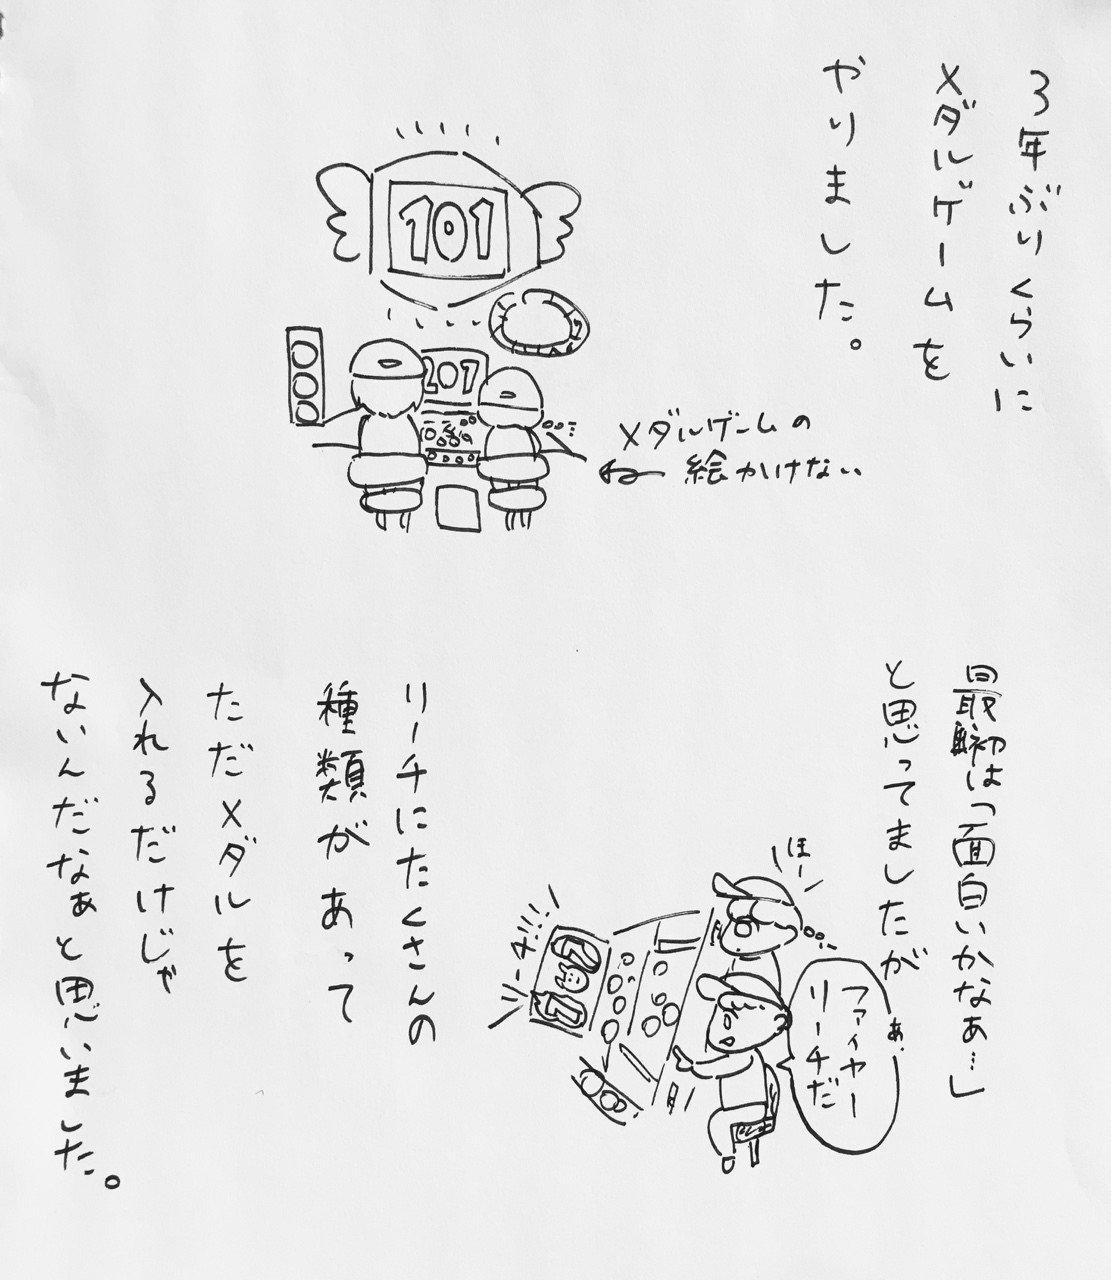 3年ぶりくらいに
メダルゲームを
やりました。
101
207
メダルゲームの
絵かけない
ねー
最初は「面白いかなぁ…」
と思ってましたが
ほー
あ、
ファイヤー
リーチだ
リーチ!!!!
リーチにたくさんの
種類があって
ただメダルを
入れるだけじゃ
ないんだなぁと思いました。